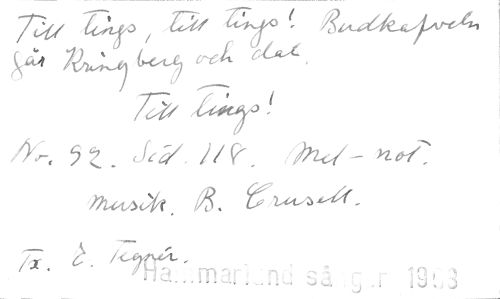 Till tings, till tings! Budkafveln
går kring berg och dal.
Till tings!
No. 92. Sid. 118. Mel-not.
musik. B. Crusell.
Tx. E. Tegnér.
Hammarland sånger 1903